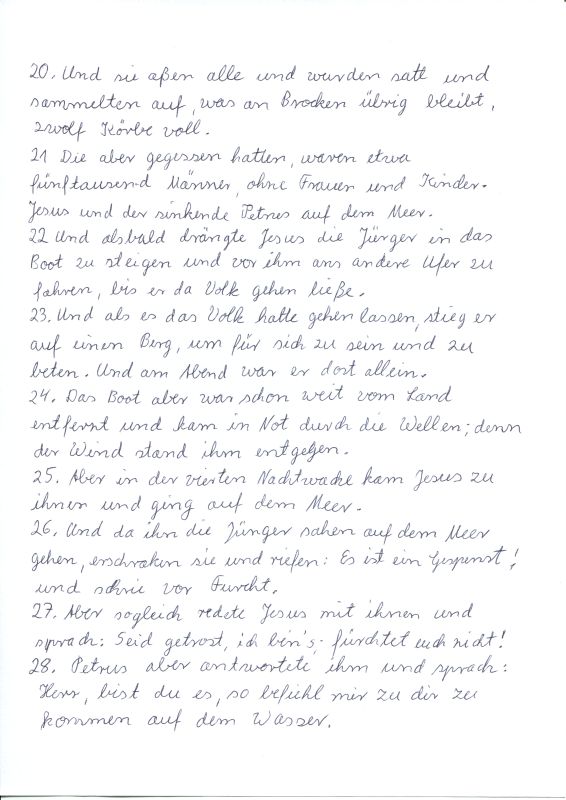 20. Und sie aßen alle und wurden satt und
sammelten auf, was an Brocken übrig bleibt,
zwölf Körbe voll.
21 Die aber gegessen hatten, waren etwa
fünftausend Männer, ohne Frauen und Kinder.
Jesus und der sinkende Petrus auf dem Meer.
22 Und alsbald drängte Jesus die Jünger in das
Boot zu steigen und vor ihm ans andere Ufer zu
fahren, bis er da Volk gehen ließe.
23. Und als es das Volk hatte gehen lassen, stieg er
auf einen Berg, um für sich zu sein und zu
beten. Und am Abend war er dort allein.
24. Das Boot aber war schon weit vom Land
entfernt und kam in Not durch die Wellen; denn
der Wind stand ihm entgegen.
25. Aber in der vierten Nachtwache kam Jesus zu
ihnen und ging auf dem Meer.
26. Und da ihn die Jünger sahen auf dem Meer
gehen, erschraken sie und riefen: Es ist ein Gespenst!
und schrie vor Furcht.
27. Aber sogleich redete Jesus mit ihnen und
sprach: Seid getrost, ich bin's; fürchtet euch nicht!
28. Petrus aber antwortete ihm und sprach:
Herr, bist du es, so befiehl mir zu dir zu
kommen auf dem Wasser.